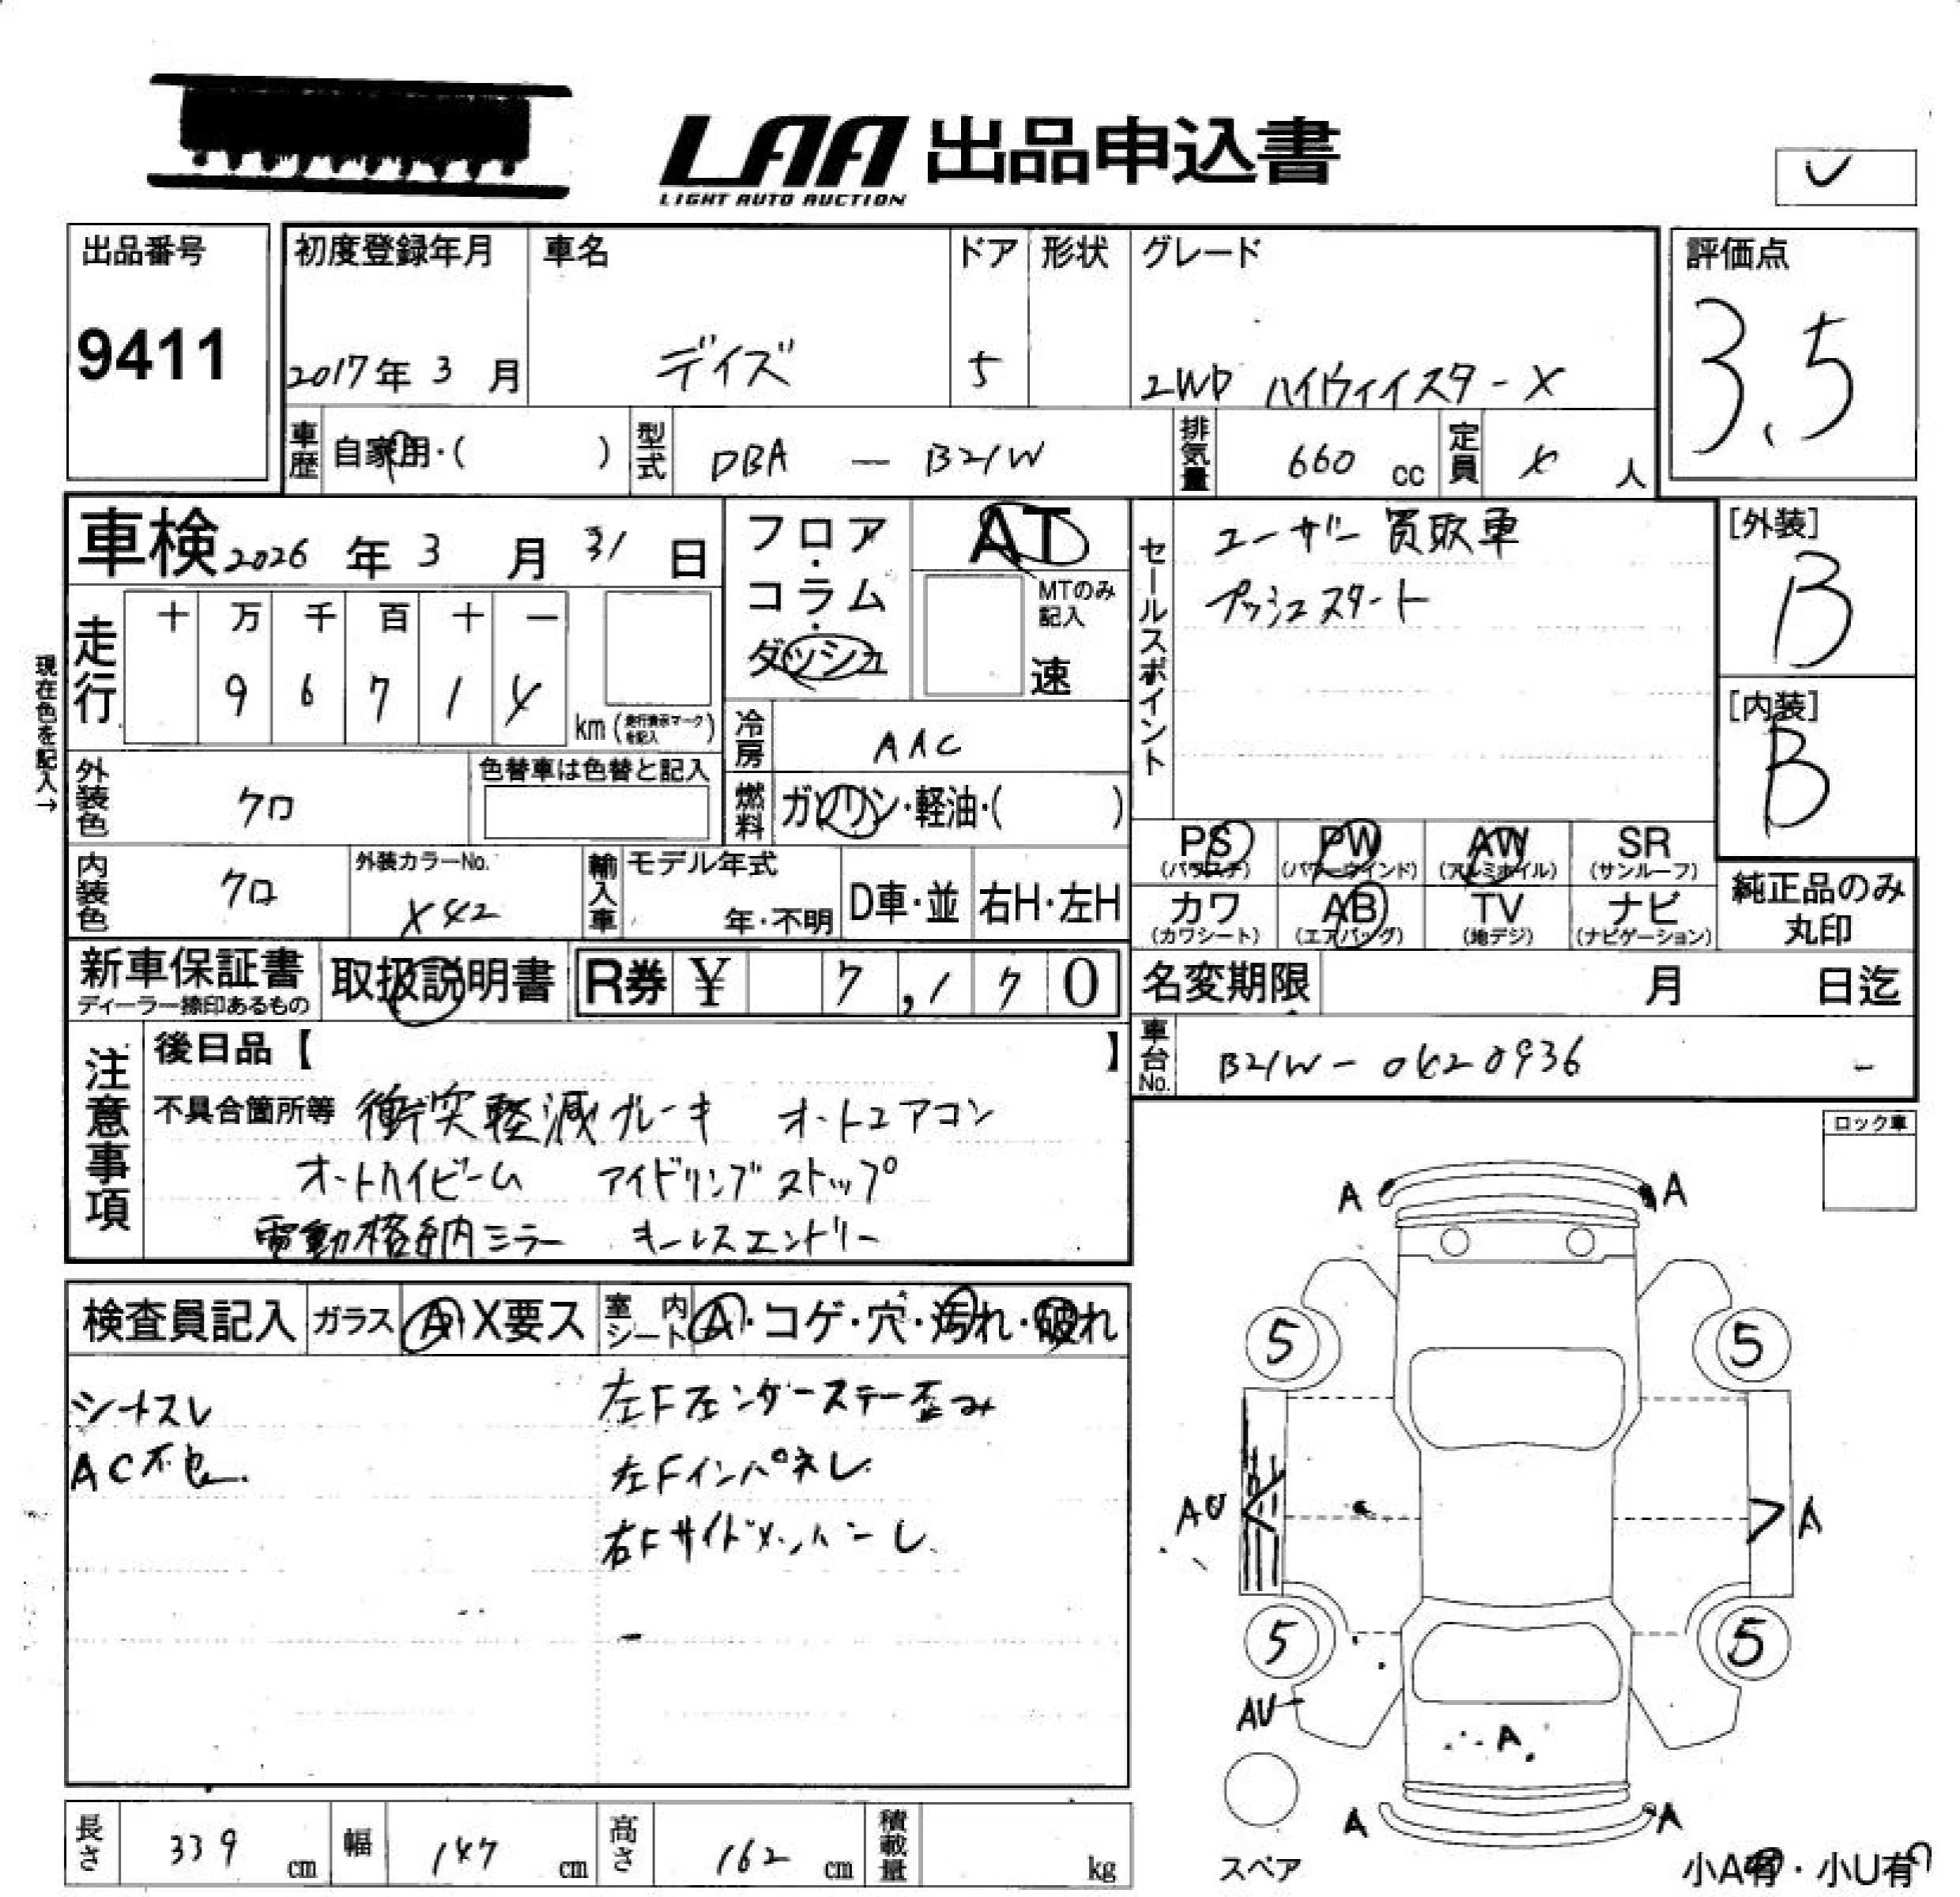 LAA 出品申込書
LIGHT AUTO AUCTION
出品番号
9411
初度登録年月
2017年 3 月
車名
デイズ
ドア
5
形状
グレード
2WD ハイウェイスターX
評価点
3.5
車歴 自家用・( )
型式 DBA — B21W
排気量 660 cc
定員 4 人
車検 2026 年 3 月 31 日
フロア・コラム・ダッシュ
AT
MTのみ記入
速
セールスポイント
ユーザー買取車
プッシュスタート
[外装]
B
[内装]
B
現在色を記入→
走行
十 万 千 百 十 一
9 6 7 1 4
km (走行表示マークを記入)
冷房 AAC
燃料 ガソリン・軽油・( )
外装色 クロ
色替車は色替と記入
内装色 クロ
外装カラーNo.
X42
輸入車
モデル年式
年・不明
D車・並
右H・左H
PS (パワステ)
PW (パワーウインド)
AW (アルミホイル)
SR (サンルーフ)
カワ (カワシート)
AB (エアバッグ)
TV (地デジ)
ナビ (ナビゲーション)
純正品のみ
丸印
新車保証書
ディーラー捺印あるもの
取扱説明書
R券 ¥ 7,170
名変期限 月 日迄
車台No. B21W-0420936
注意事項
後日品【 】
不具合箇所等 衝突軽減ブレーキ オートエアコン
オートハイビーム アイドリングストップ
電動格納ミラー キーレスエントリー
ロック車
検査員記入
ガラス A X要ス
室内シート A・コゲ・穴・汚れ・破れ
シートスレ
AC不良
左Fフェンダーステー歪み
左Fインパネレ
右Fサイドメンバーレ
A A
5 5
AU A
5 5
AU
A
A A
スペア
小A有・小U有
長さ 339 cm
幅 147 cm
高さ 162 cm
積載量 kg